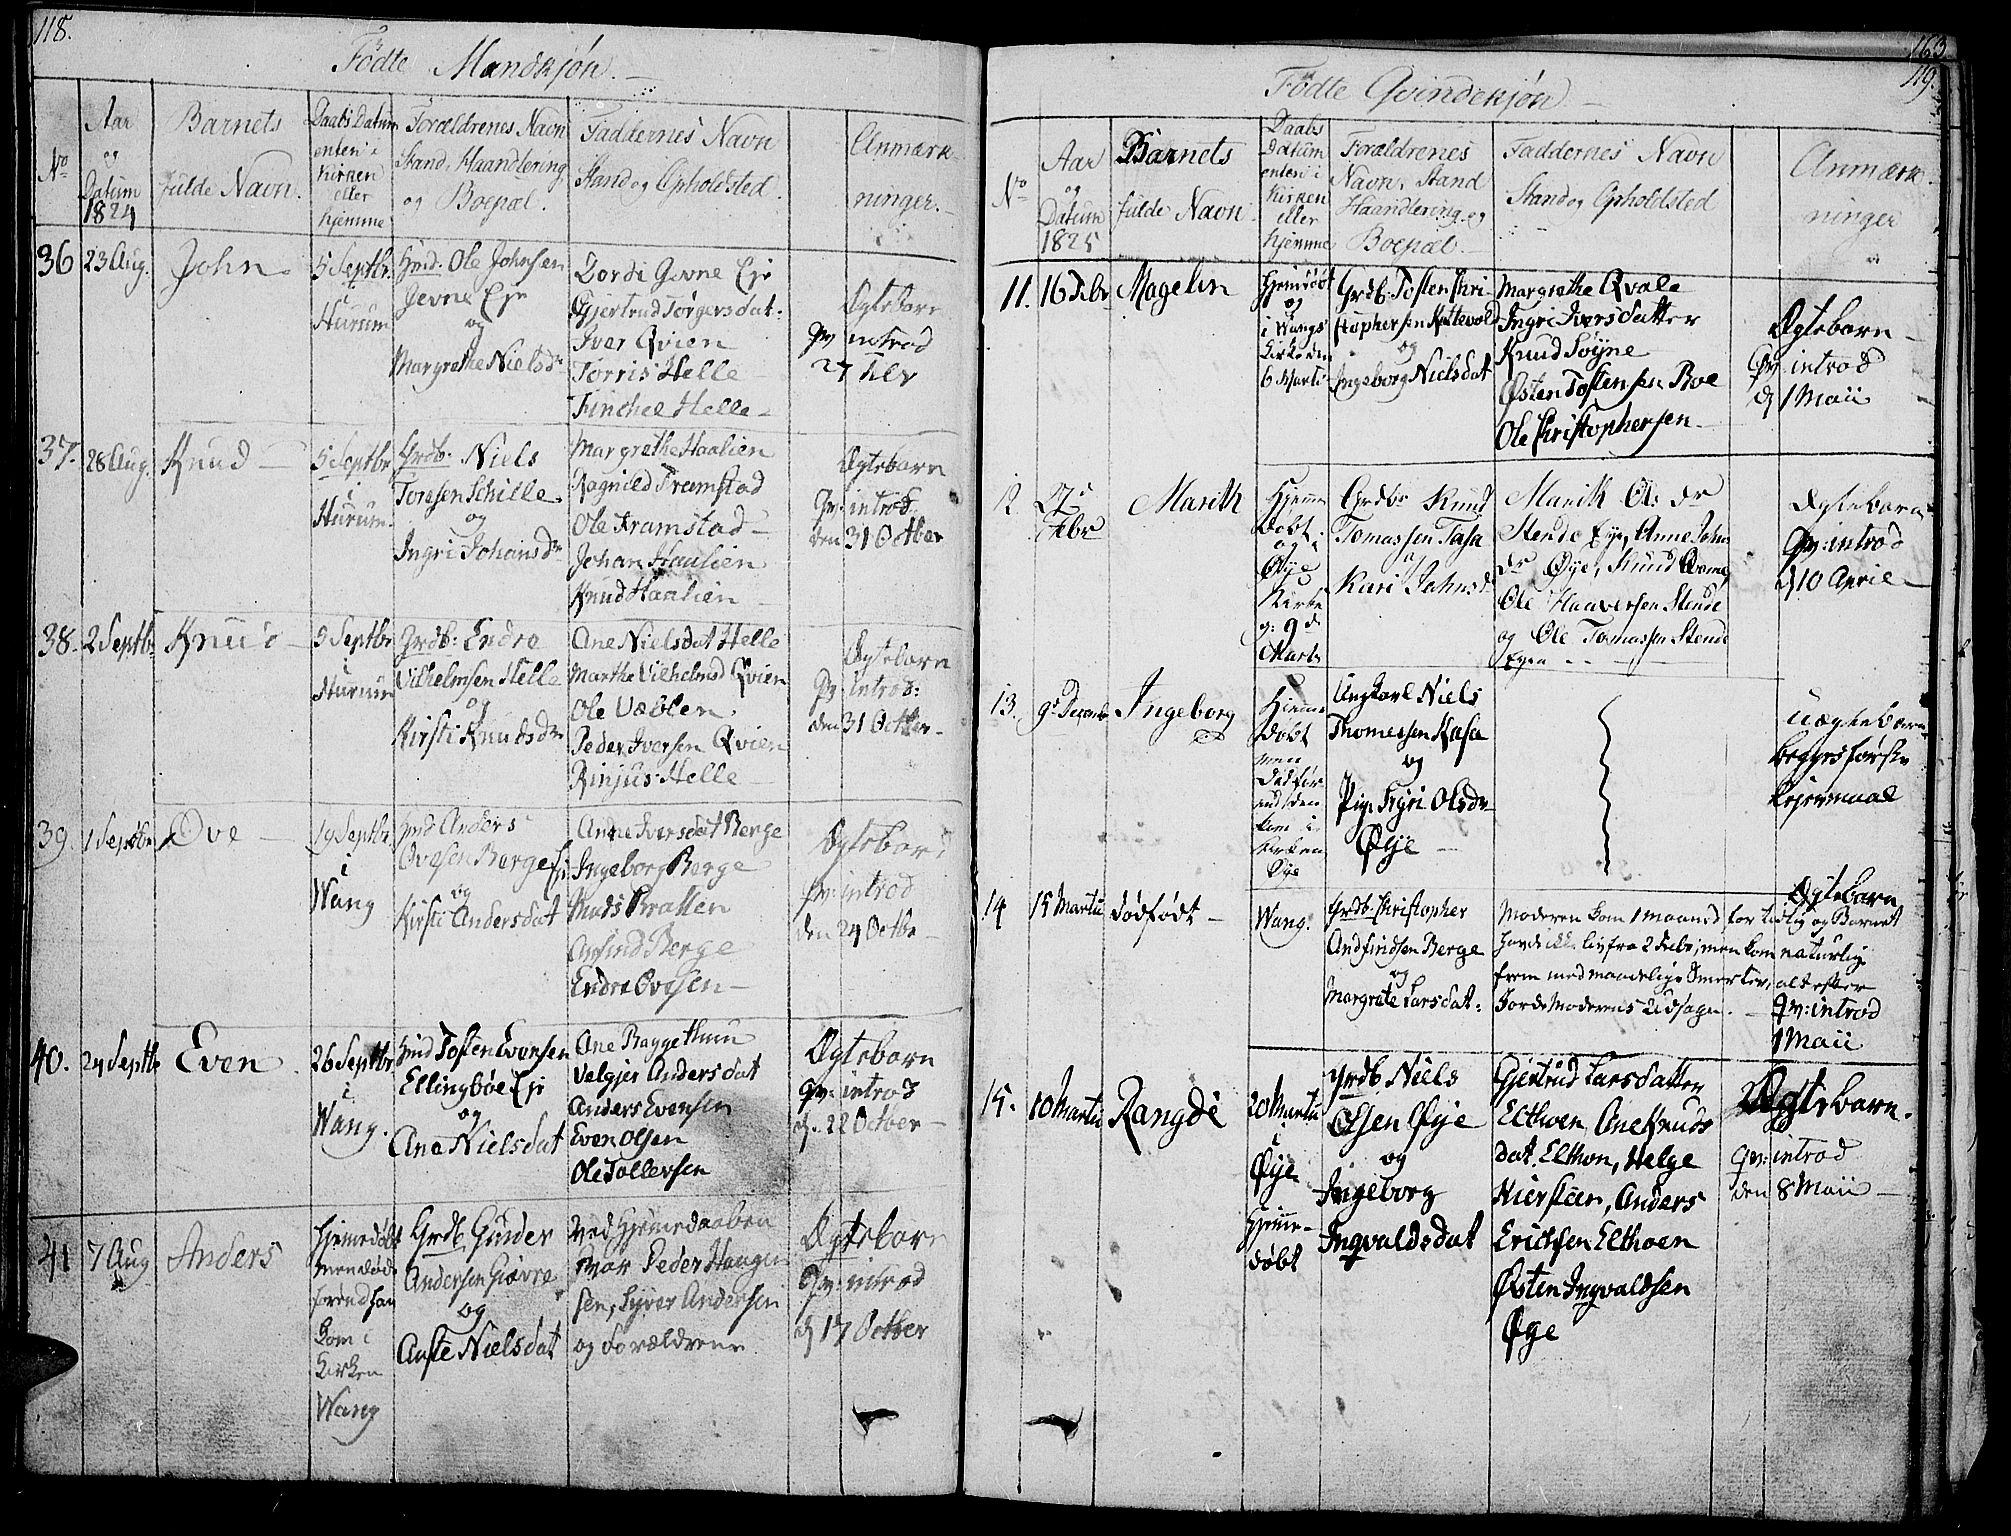 118.
Födte Mandkjön.
No
Aar
og
Datum
1824
Barnets
fulde Navn.
Daabs Datum
enten i
Kirken
eller
hjemme
Forældrenes Navn
Stand, Haandtering
og Boepæl.
Faddernes Navn
Stand og Opholdsted.
Anmærk-
ninger.
36
23 Aug.
John
5 Septbr.
i
Hurum
Hmd: Ole Johnsen
Gevne Eje
og
Margrethe Nielsdr
Zordi Gevne Eje
Gjertrud Torgersdat.
Iver Qvien
Torris Helle
Finchel Helle
Ægtebarn
Qv: introd
37.
28 Aug.
Knud
5 Septbr
i
Hurum
Grdb: Niels
Toresen Schille
og
Ingri Johansdr
Margrethe Haalien
Ragnild Framstad
Ole Framstad
Johan Haalien
Knud Haalien
Ægtebarn
Qv: introd
den 31 Octber
38.
2 Septbr
Knud
5 Septbr
i
Hurum
Grdb: Endre
Vilhelmsen Helle
og
Kirsti Knudsdr
Ane Nielsdat Helle
Marthe Vilhelmsd Qvien
Ole Væblen
Peder Iversen Qvien
Rinjus Helle
Ægtebarn
Qv: introd:
den 31 Octber
39.
1 Septbr
Ove
19 Septbr
i
Wang
Hmd Anders
Ovesen Berge Ej
og
Kirsti Andersdat
Anne Iversdat Berge
Ingeborg Berge
Mads Bratten
Anfind Berge
Endre Ovesen
Ægtebarn
Qv: introd
den 24 Octbr
40.
24 Septbr
Even
26 Septbr
i
Wang.
Hmd Tosten Evensen
Ellingbøe Eje
og
Ane Nielsdat
Ane Baggethun
Velgjer Andersdat
Anders Evensen
Even Olsen
Ole Tollersen
Ægtebarn
Qv: introd
d. 22 Octber
41
7 Aug
Anders
Hjemedøbt
men død
forend han
kom i
Kirken
Wang
Grdb. Gunder
Andersen Giøvre
og
Anste Nielsdat
Ved Hjemedaaben
var Peder Haagen
sen, Syver Andersen
og Forældrene
Ægtebarn
Qv: introd
d 17 Octber
163
119.
Födte Qvindekjön
No
Aar
og
Datum
1825
Barnets
fulde Navn
Daabs
Datum
enten i
Kirken
eller
hjemme
Forældrenes
Navn, Stand
Haandtering og
Boepæl
Faddernes Navn
Stand og Opholdsted
Anmærk-
ninger
11.
16 Febr
Magelin
Hjemdøbt
og
i Wangs
Kirke den
6 Marti
Grdb. Tosten Chri
stophersen Kattevold
og
Ingeborg Nielsdat
Margrethe Qvale
Ingri Iversdatter
Knud Søyne
Østen Tostensen Boe
Ole Christophersen
Ægtebarn
Qv: introd
d 1 Maii
12
27d
Febr
Marith
Hjemme
døbt
og i
Øye
Kirke
9d
Marts
Grdbr Knud
Tomassen Tasa
og
Kari Johnsd
Marith Ols dr
Stende Eye, Anne John
dr Øye, Knud Qvame
Ole Haaversen Stende
og Ole Tomassen Stende
Eyen
Ægtebarn
Qv: introd
d 10 April
13.
9d Decembr
Ingeborg
Hjemme
døbt
men
død før
end den
kom i
Kirken
Øye
Ungkarl Niels
Thomessen Kasa
og
Pige Sigri Olsdr
Øye
uægtebarn
begges første
Lejermaal
14
15 Martii
dødfødt
Wang.
Grdb. Christopher
Andfindsen Berge
og
Margrete Larsdat:
Moderen kom 1 maaned for tidlig og Barnet
havde ikke liv fra 2 Febr, men kom naturlig
frem med maadelige Smerter, alt efter
Jordemoderens Udsagn.
Ægtebarn
Qv: introd
1 Maii
15.
10 Martii
Rangdi
20 Martii
i
Øye
Hjemme-
døbt
Grdb. Niels
Olsen Øye
og
Ingeborg
Ingvaldsdat
Gjertrud Larsdatter
Elthoen, Ane Knuds
dat. Elthon, Helge
Kiersteen, Anders
Erichsen Elthoen
Østen Ingvaldsen
Øye
Ægtebarn.
Qv: introd
den 8 Maii